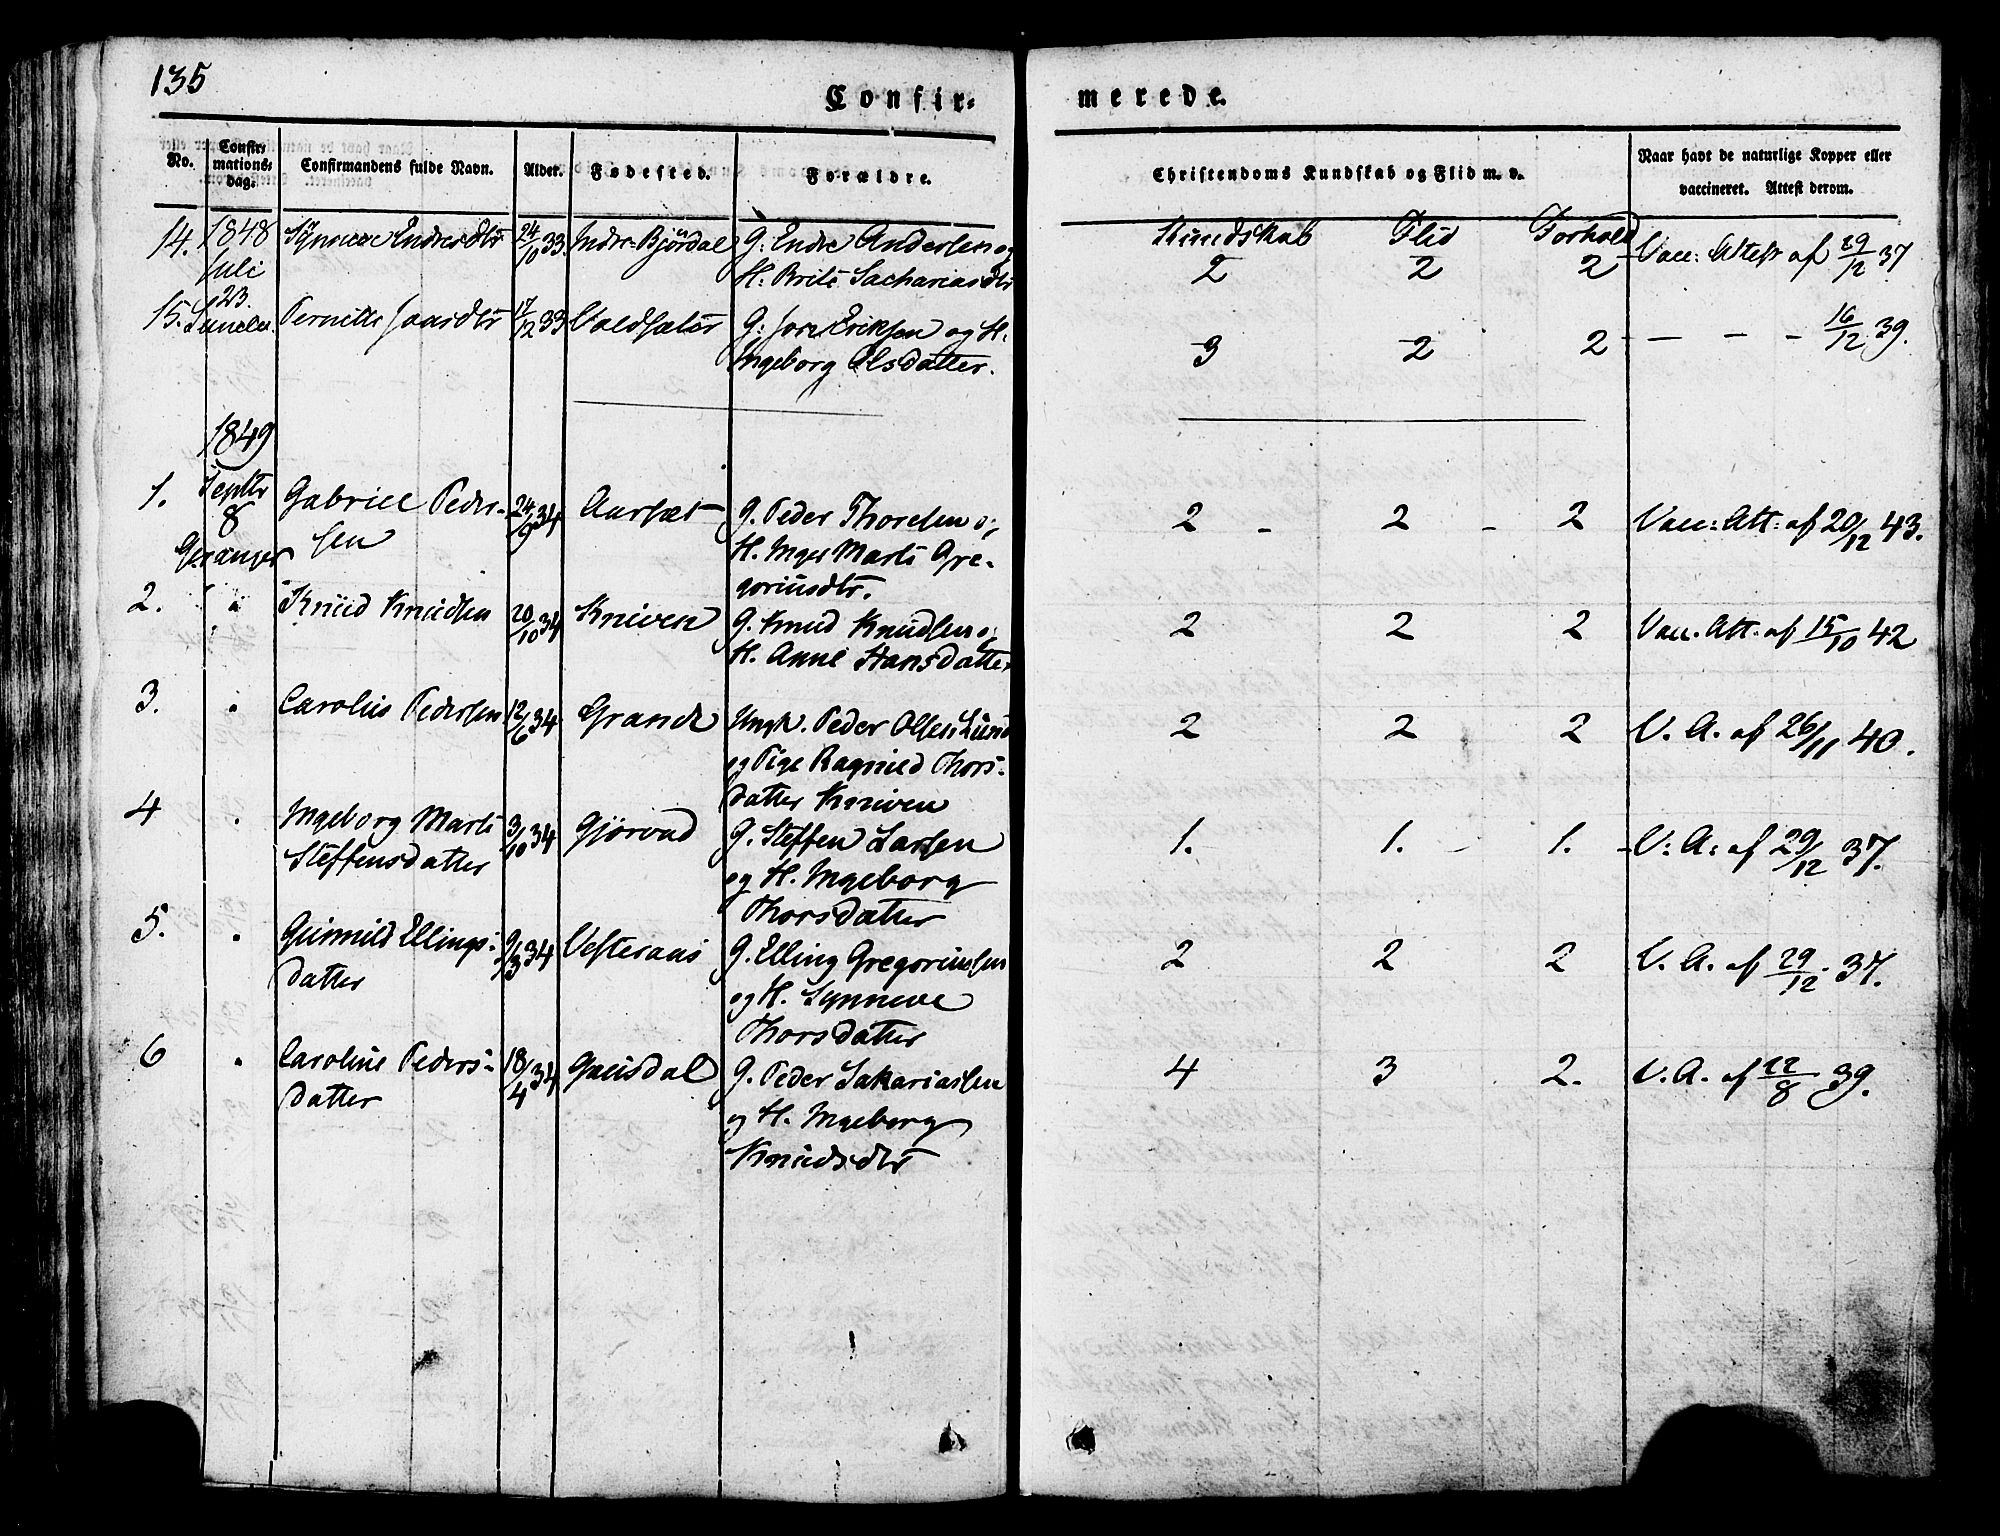 135
Confir-
merede.
No.
Confir-
mations-
dag.
Confirmandens fulde Navn.
Alder.
Fødested.
Forældre.
Christendoms Kundskab og Flid m. v.
Naar havt de naturlige Kopper eller
vaccineret. Attest derom.
14. 1848 Synneve Endresdtr 24/10 33. Indre-Bjørdal G: Endre Andersen og Kundskab Flid Forhold Vacc: Attest af 29/12 37
Juli H. Brite Sachariasdtr 2 2 2
23.
15. Sunelv. Pernille Jonsdtr 17/12 33 Voldsæter G: Jon Eriksen og H. 3 2 2 - - - 16/12 39.
Ingeborg Olsdatter.
1849
1. Septbr Gabriel Peder- 24/9 34 Aarsæt G. Peder Thoresen og 2 - 2 - 2 Vacc: Att: af 20/12 43.
8 sen H. Inger Marte Gre-
Geranger goriusdtr.
2. " Knud Knudsen 20/10 34 Kniven G. Knud Knudsen og 2 2 2 Vacc. Att. af 15/10 42
H. Anne Hansdatter
3. " Carolus Pedersen 12/6 34 Grande Ungk. Peder Olsen Lund 2 2 2 V. A. af 26/11 40.
og Pige Ragnild Thors-
datter Kniven
4 " Ingeborg Marte 3/10 34 Gjørvad G. Steffen Larsen 1. 1. 1. V: A: af 29/12 37.
Steffensdatter og H. Ingeborg
Thorsdatter
5. " Gunnild Ellings- 9/3 34 Vesteraas G. Elling Gregoriussen 2 2 2 V. A. af 29/12 37.
datter og H. Synneve
Thorsdatter
6 " Caroline Peders- 18/4 34 Gausdal G. Peder Sakariassen 4 3 2. V. A. af 22/8 39.
datter og H. Ingeborg
Knudsdtr